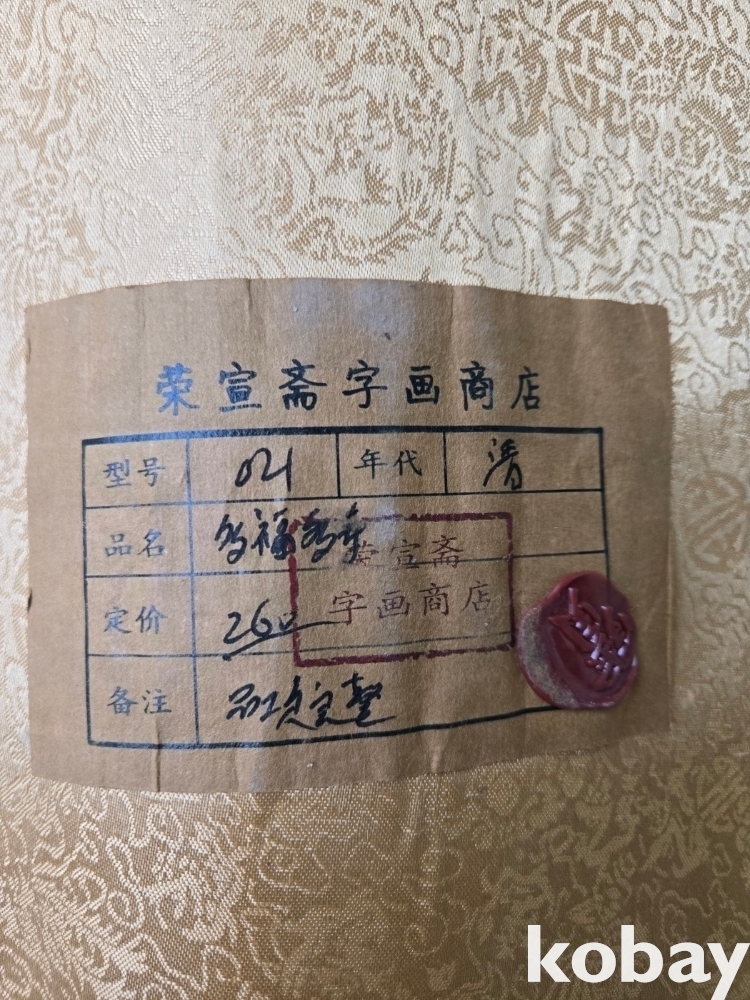 荣宣斋字画商店
型号 021 年代 清
品名 多福多寿
荣宣斋
字画商店
定价 260
备注 品相完整
kobay